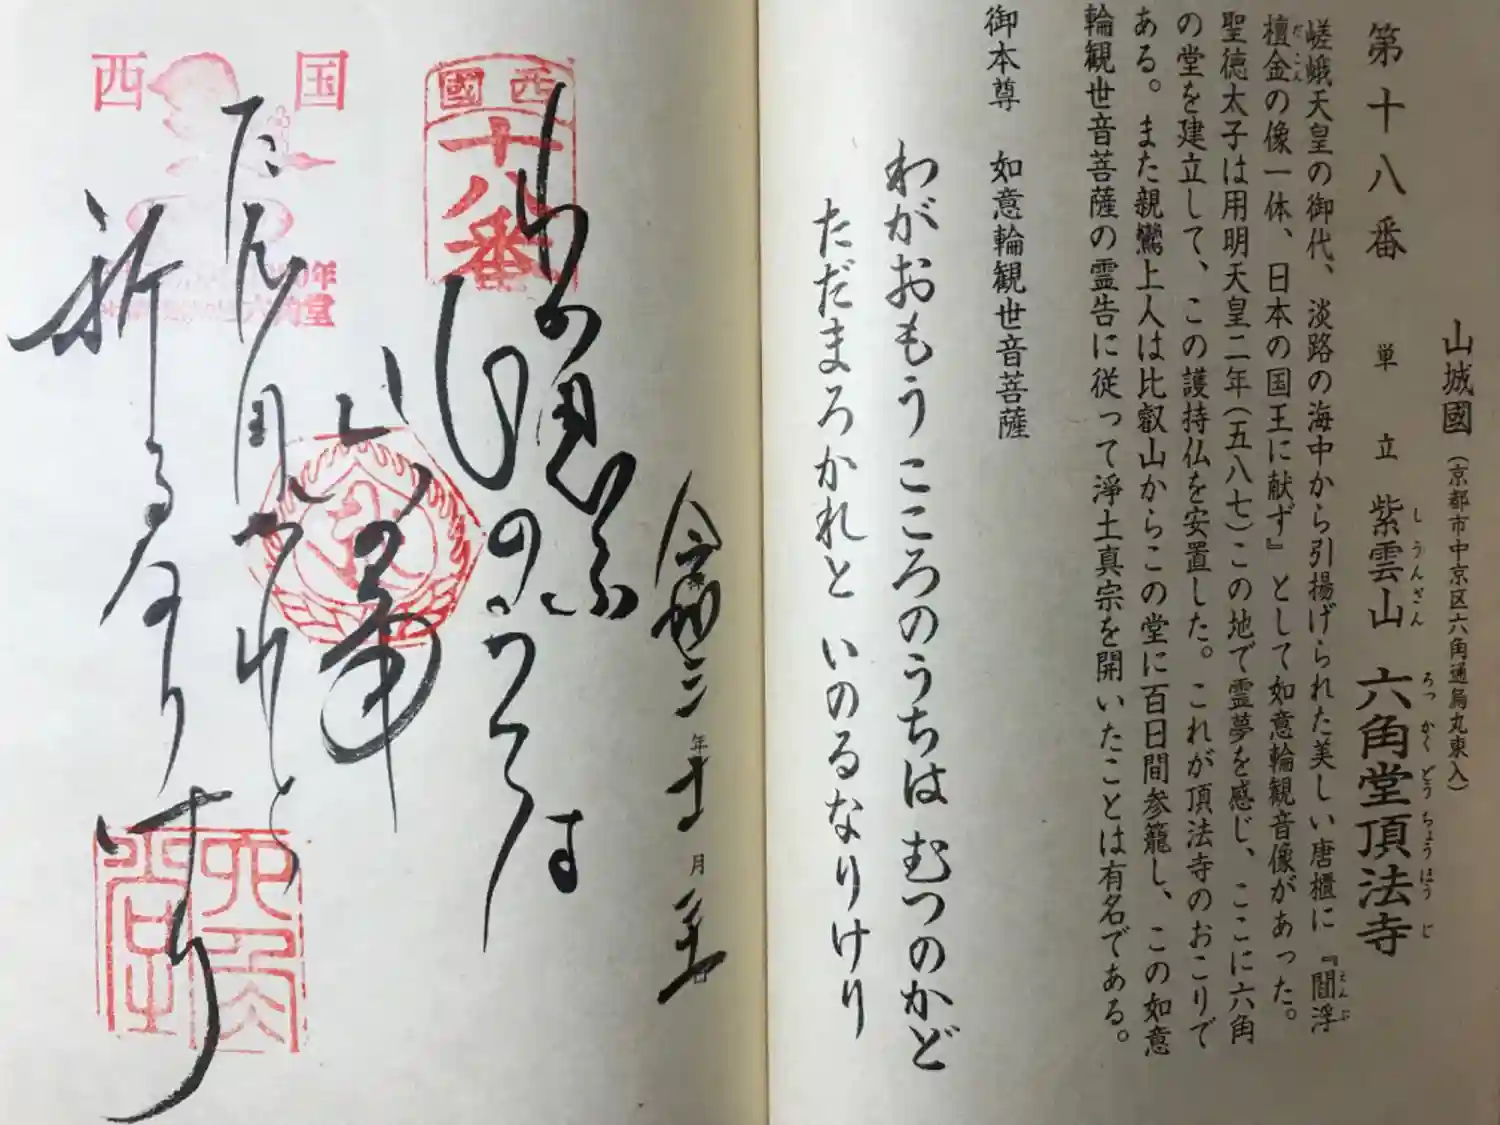 山城國（京都市中京区六角通烏丸東入）
第十八番 単立 紫雲山 六角堂頂法寺
しうんざん ろっかくどうちょうほうじ
嵯峨天皇の御代、淡路の海中から引揚げられた美しい唐櫃に『閻浮
えんぶ
檀金の像一体、日本の国王に献ず』として如意輪観音像があった。
だごん
聖徳太子は用明天皇二年（五八七）この地で霊夢を感じ、ここに六角
の堂を建立して、この護持仏を安置した。これが頂法寺のおこりで
ある。また親鸞上人は比叡山からこの堂に百日間参籠し、この如意
輪観世音菩薩の霊告に従って淨土真宗を開いたことは有名である。
御本尊 如意輪観世音菩薩
わがおもう こころのうちは むつのかど
ただまろかれと いのるなりけり
令和二年十一月
わの思ふ
心のうちは
六の角
たん円かれと
祈るなりけり
西國
十八番
西国
六角堂
六角堂